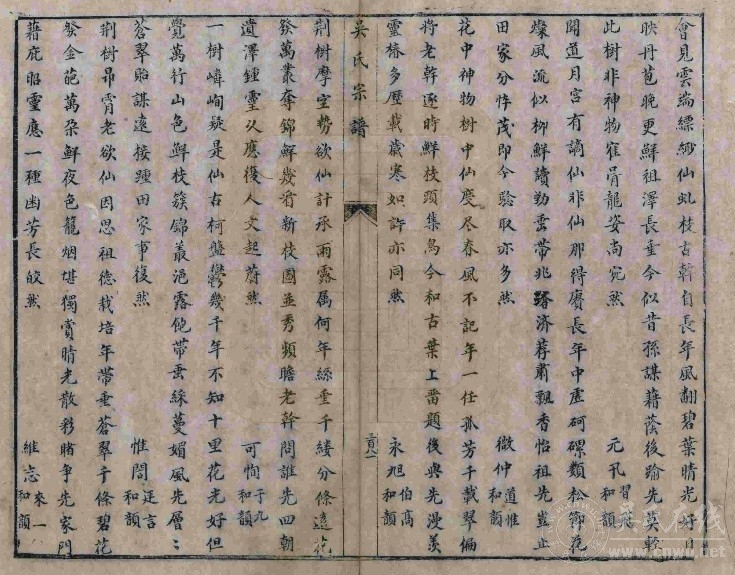 會見雲端縹緲仙虬枝古幹自長年風翻碧葉晴光好日
映丹苞晚更鮮祖澤長垂今似昔孫謀藉蔭後踰先莫輕
此樹非神物寉骨龍姿尚宛然
元孔習飛和韻
聞道月宮有謫仙非仙那得賡長年中虛砢磥類松節花
燦風流似柳鮮讀勁垂帶兆躋濟荐肅飄香怡祖先豈止
田家分悴茂即今騐取亦多然
微仲道惟和韻
花中神物樹中仙慶尽春風不記年一任孤芳千載翠偏
將老幹逐時鮮枝頭集鳥今和古葉上畱題後與先漫羨
靈椿多歷載歲寒如許亦同然
永旭伯高和韻
吳氏宗譜
三百八一
荆樹摩空勢欲仙計承雨露屬何年絲垂千縷分條遠花
發萬叢奪錦鮮幾看新枝園並秀頻瞻老幹問誰先四朝
遺澤鍾靈久應復人文起蔚然
可恂于九和韻
一樹嶙峋疑是仙古柯盤鬱幾千年不知十里花光好但
覺萬竹山色鮮枝簇錦叢浥露佗帶垂綵蔓媚風先層〻
蒼翠貽謀遠接踵田家事復然
惟問廷言和韻
荆樹昂霄老欲仙因思祖德栽培年帶垂蒼翠千條碧花
發金葩萬朵鮮夜色籠烟堪獨賞晴光散彩睹争先家門
藉庇昭靈應一種幽芳長皎然
維忘來一和韻
吳氏在线
www.cnwu.net